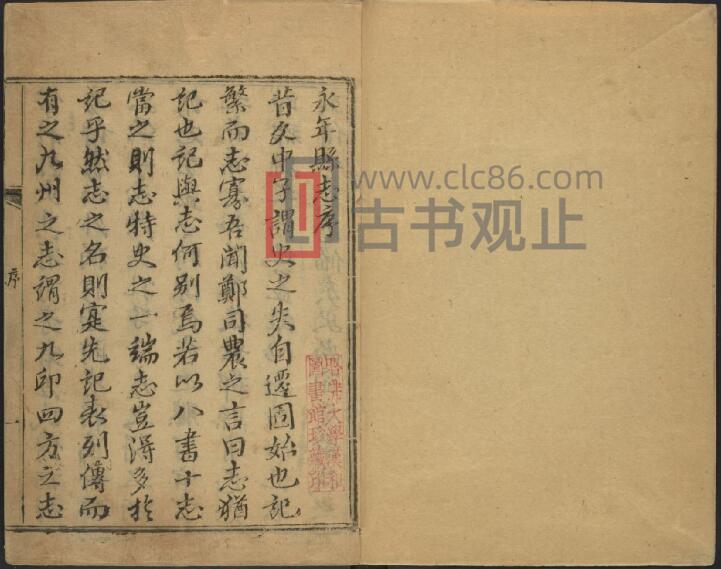 永年縣志序
昔文中子謂史之失自遷固始也記
繁而志寡吾聞鄭司農之言曰志猶
記也記與志何別焉若以八書十志
當之則志特史之一端志豈得多於
記乎然志之名則寔先記表列傳而
有之九州之志謂之九邱四方之志
序
一
哈佛大學漢和
圖書館珍藏印
www.clc86.com
古书观止